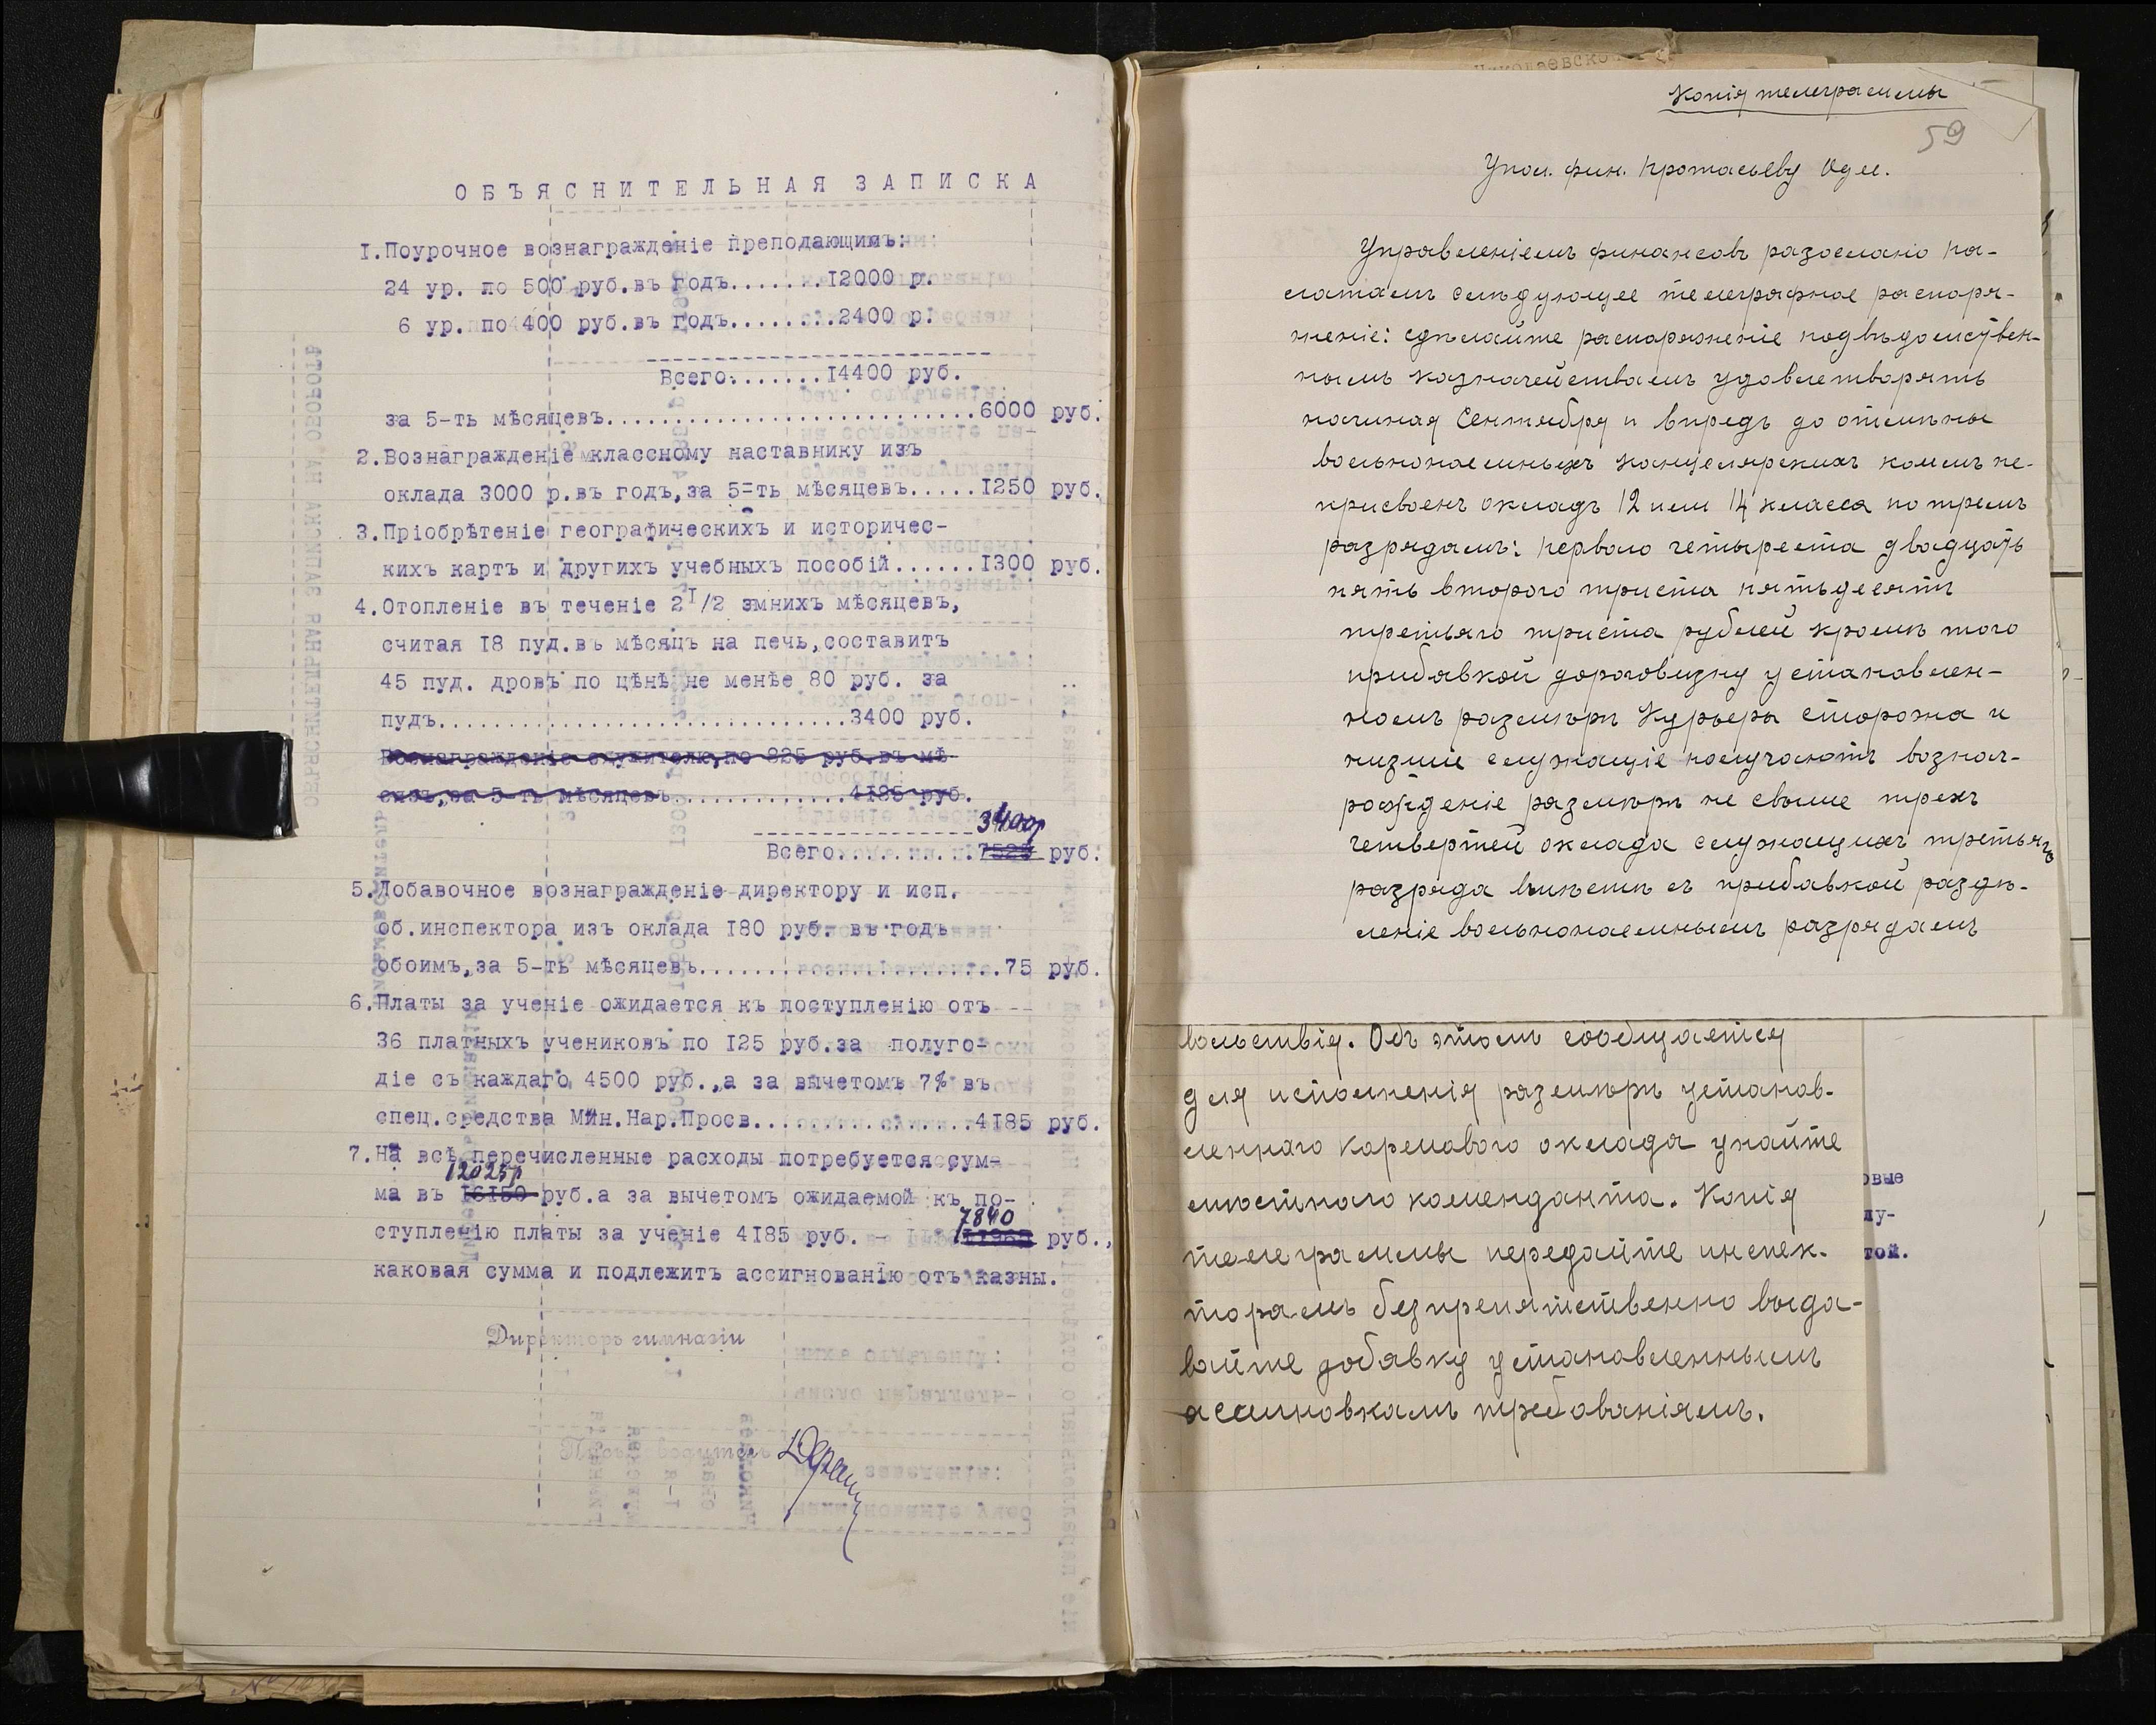 ОБЪЯСНИТЕЛЬНАЯ ЗАПИСКА
I.Поурочное вознагражденіе преподающимъ:
24 ур. по 500 руб.въ годъ.......I2000 р.
6 ур. по 400 руб.въ годъ........2400 р.
Всего.......I4400 руб.
за 5-ть мѣсяцевъ...........................6000 руб.
2.Вознагражденіе классному наставнику изъ
оклада 3000 р.въ годъ,за 5-ть мѣсяцевъ.....I250 руб.
3.Пріобрѣтеніе географическихъ и историчес-
кихъ картъ и другихъ учебныхъ пособій......I300 руб.
4.Отопленіе въ теченіе 2I/2 змнихъ мѣсяцевъ,
считая I8 пуд.въ мѣсяцъ на печь,составитъ
45 пуд. дровъ по цѣнѣ не менѣе 80 руб. за
пудъ..............................3400 руб.
Вознагражденіе служителю,по 825 руб.въ мѣ-
сяцъ,за 5-ть мѣсяцевъ.............4I85 руб.
3400р
Всего..........7525 руб.
5.Добавочное вознагражденіе директору и исп.
об.инспектора изъ оклада I80 руб. въ годъ
обоимъ,за 5-ть мѣсяцевъ......................75 руб.
6.Платы за ученіе ожидается къ поступленію отъ
36 платныхъ учениковъ по I25 руб.за полуго-
діе съ каждаго 4500 руб.,а за вычетомъ 7% въ
спец.средства Мин.Нар.Просв................4I85 руб.
7.На всѣ перечисленные расходы потребуется сум-
12025р
ма въ I6I50 руб.а за вычетомъ ожидаемой къ по-
7840
ступленію платы за ученіе 4I85 руб. - руб.,
каковая сумма и подлежитъ ассигнованію отъ казны.
Директоръ гимназіи
Копія телеграммы
59
Упол. фин. Протасьеву Одес.
Управленіемъ финансовъ разослано па-
латамъ слѣдующее телеграфное распоря-
женіе: сдѣлайте распоряженіе подвѣдомствен-
нымъ казначействамъ удовлетворять
начиная Сентября и впредь до отмѣны
вольнонаемныхъ канцелярскихъ коимъ не-
присвоенъ окладъ 12 или 14 класса по тремъ
разрядамъ: перваго четыреста двадцать
пять второго триста пятьдесятъ
третьяго триста рублей кромѣ того
прибавкой дороговизну установлен-
номъ размѣрѣ Курьеры сторожа и
низшіе служащіе получаютъ вознаг-
рожденіе размѣрѣ не свыше трехъ
четвертей оклада служащихъ третьяго
разряда вмѣстѣ съ прибавкой раздѣ-
леніе вольнонаемнымъ разрядамъ
вольствія. Объ этомъ сообщается
для исполненія размѣръ установ-
леннаго кормового оклада узнайте
мѣстнаго коменданта. Копія
телеграммы передайте инспек-
торамъ безпрепятственно выда-
вайте добавку установленнымъ
ассигновкамъ требованіямъ.
овые
лу-
той.